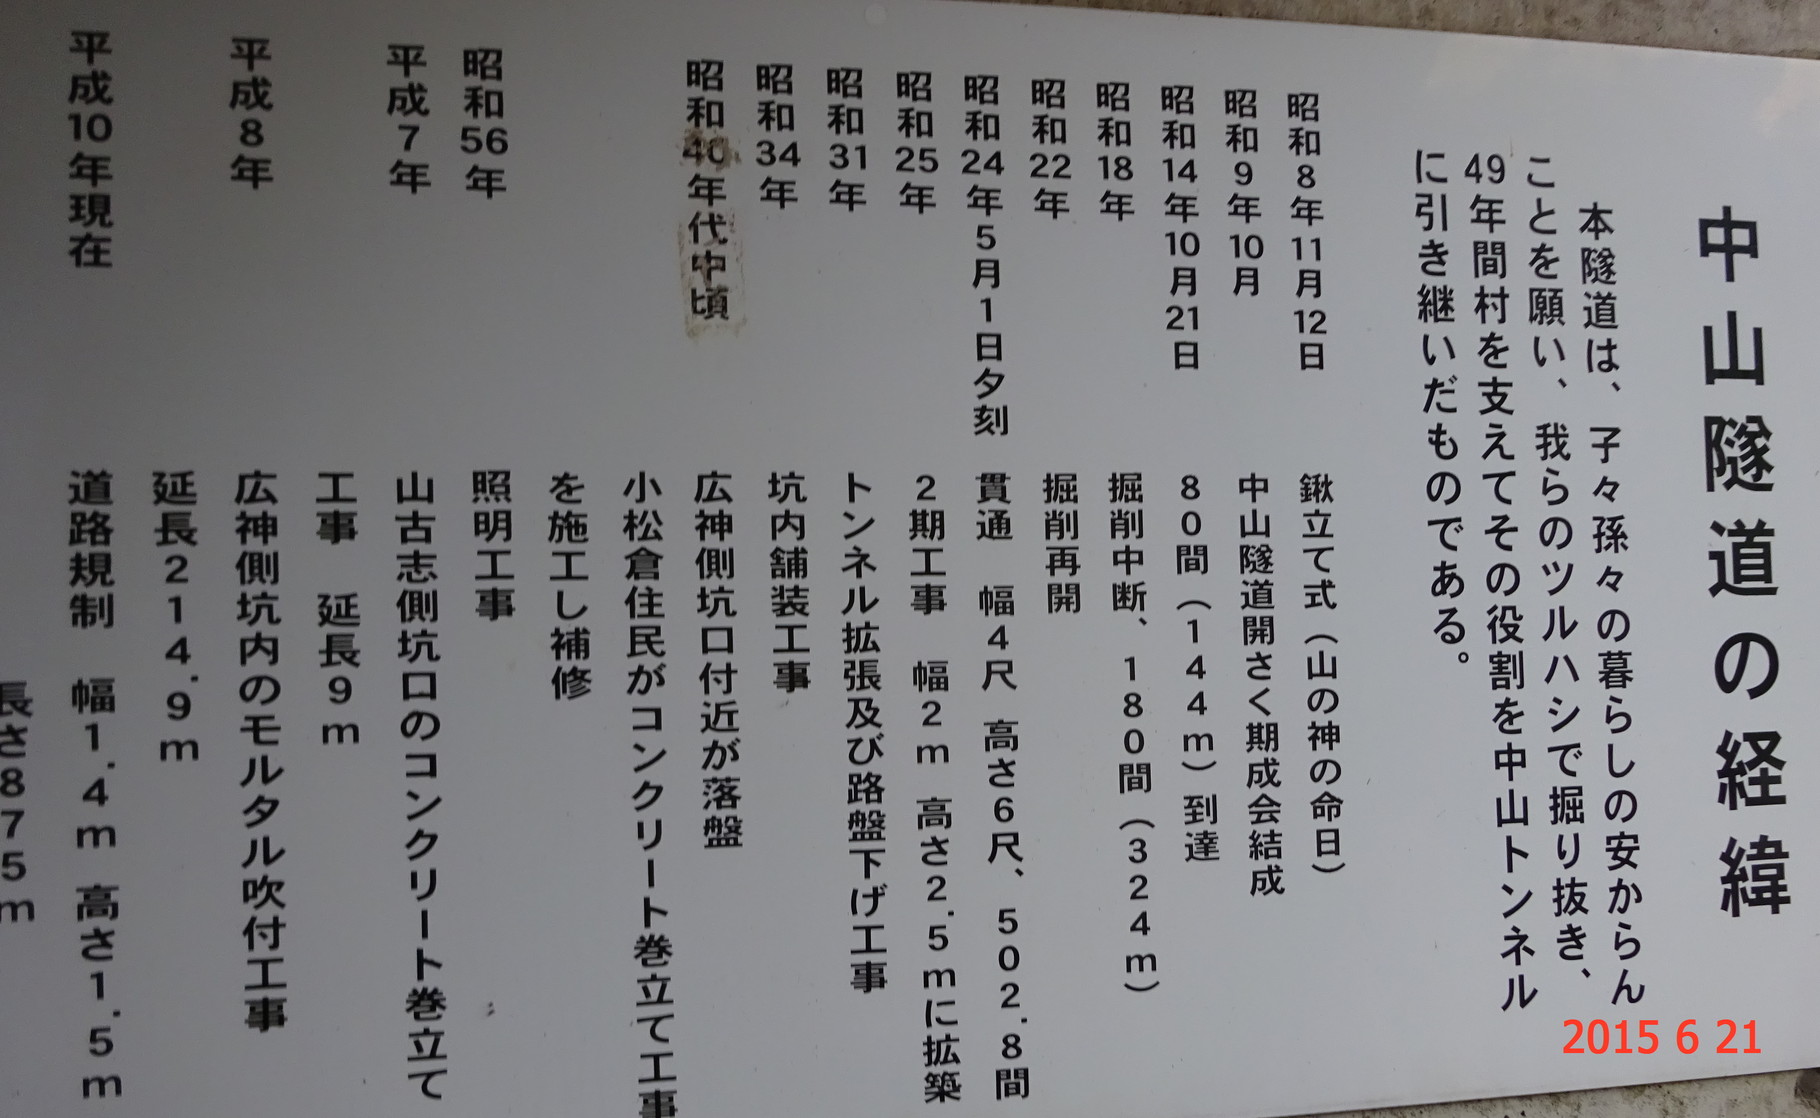 中山隧道の経緯
本隧道は、子々孫々の暮らしの安からん
ことを願い、我らのツルハシで掘り抜き、
49年間村を支えてその役割を中山トンネル
に引き継いだものである。
昭和8年11月12日 鍬立て式（山の神の命日）
昭和9年10月 中山隧道開さく期成会結成
昭和14年10月21日 80間（144m）到達
昭和18年 掘削中断、180間（324m）
昭和22年 掘削再開
昭和24年5月1日夕刻 貫通 幅4尺 高さ6尺、502.8間
昭和25年 2期工事 幅2m 高さ2.5mに拡築
昭和31年 トンネル拡張及び路盤下げ工事
昭和34年 坑内舗装工事
昭和40年代中頃 広神側坑口付近が落盤
小松倉住民がコンクリート巻立て工事
を施工し補修
昭和56年 照明工事
平成7年 山古志側坑口のコンクリート巻立て
工事 延長9m
平成8年 広神側坑内のモルタル吹付工事
延長214.9m
平成10年現在 道路規制 幅1.4m 高さ1.5m
長さ875m
2015 6 21